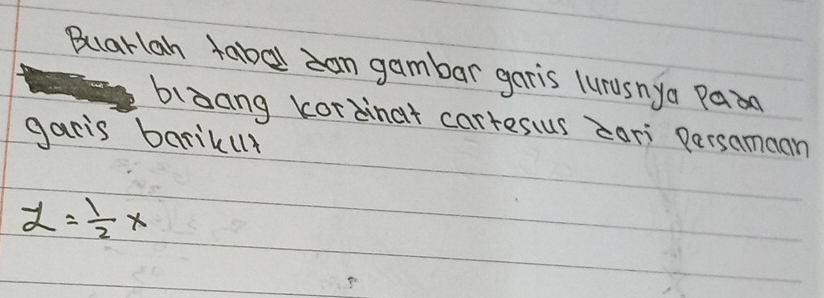 Buatlah tabel dan gambar garis lurusnya pada
bidang kordinat cartesius dari persamaan
garis berikut
y = 1/2 x